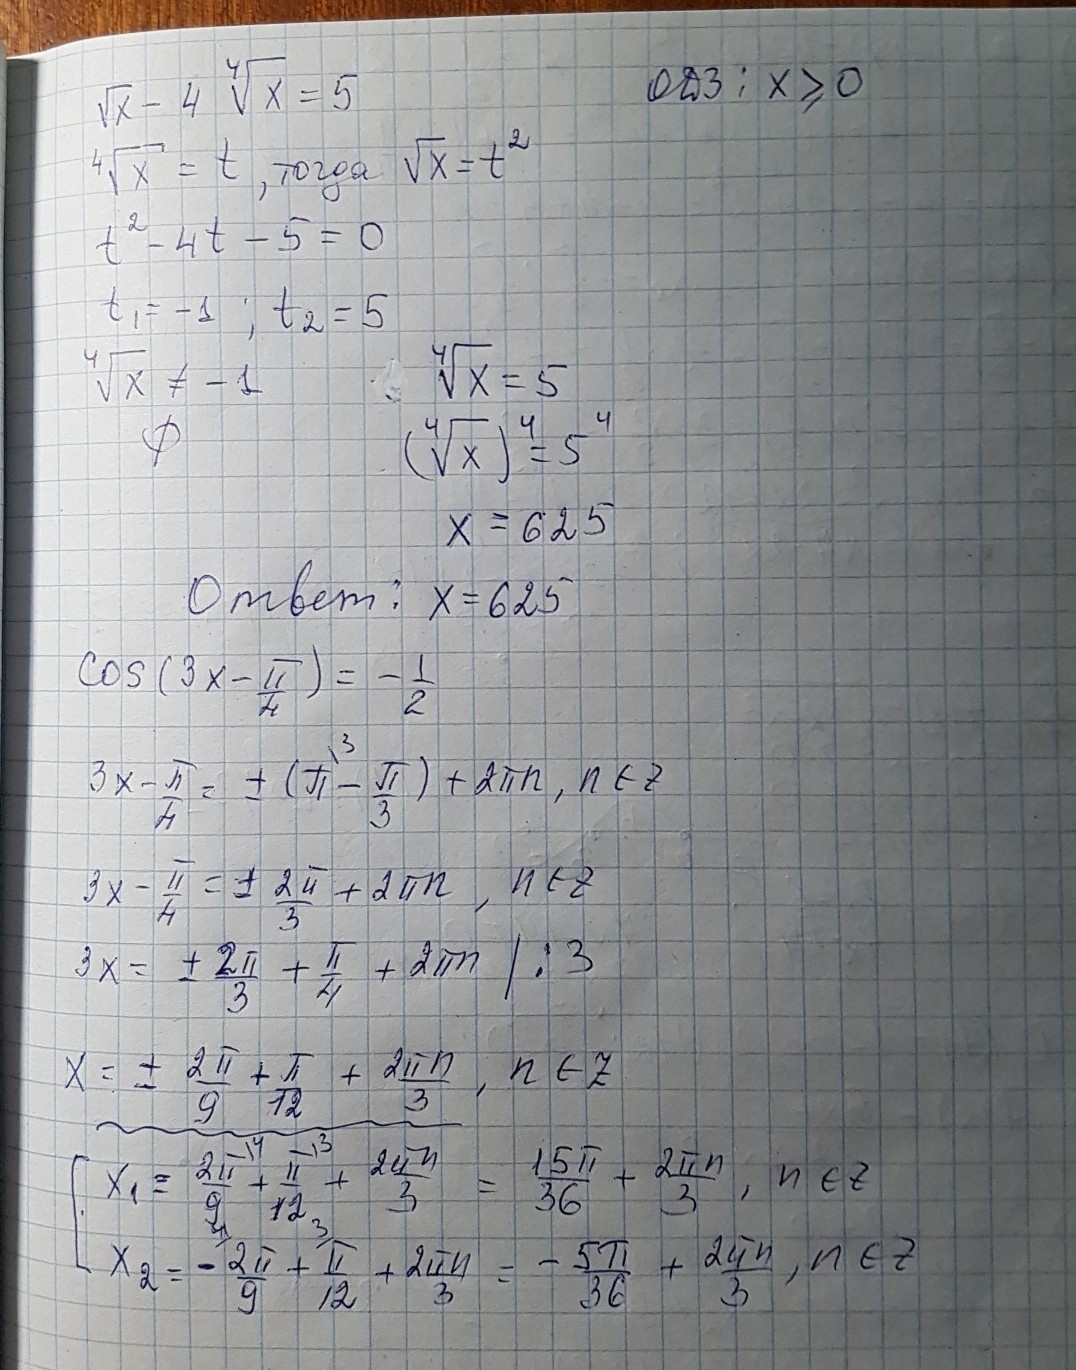 √x - 4 ∜x = 5 ОДЗ: x ⩾ 0
∜x = t, тогда √x = t²
t² - 4t - 5 = 0
t₁ = -1 ; t₂ = 5
∜x ≠ -1 ∜x = 5
∅ (∜x)⁴ = 5⁴
x = 625
Ответ: x = 625
cos(3x - π/4) = - 1/2
3x - π/4 = ± (π\³ - π/3) + 2πn, n ∈ Z
3x - π/4 = ± 2π/3 + 2πn, n ∈ Z
3x = ± 2π/3 + π/4 + 2πn /:3
x = ± 2π/9 + π/12 + 2πn/3, n ∈ Z
x₁ = 2π\⁴/9 + π\³/12 + 2πn/3 = 15π/36 + 2πn/3, n ∈ Z
x₂ = - 2π\⁴/9 + π\³/12 + 2πn/3 = - 5π/36 + 2πn/3, n ∈ Z